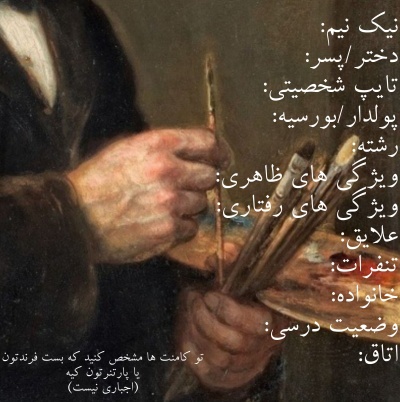 نیک نیم:
دختر/پسر:
تایپ شخصیتی:
پولدار/بورسیه:
رشته:
ویژگی های ظاهری:
ویژگی های رفتاری:
علایق:
تنفرات:
خانواده:
وضعیت درسی:
اتاق:
تو کامنت ها مشخص کنید که بست فرندتون
یا پارتنرتون کیه
(اجباری نیست)